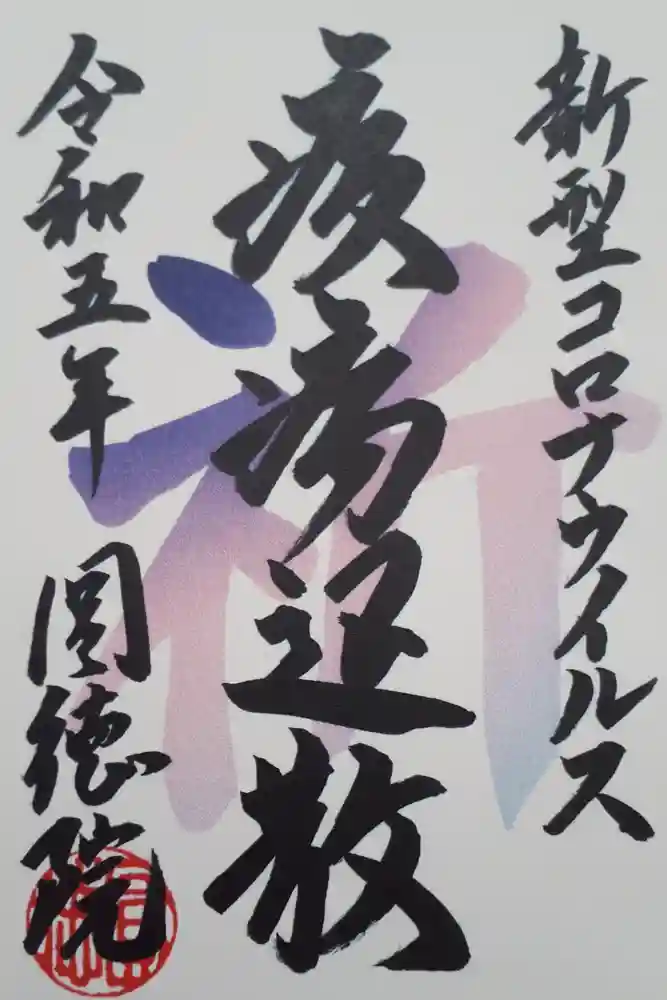 新型コロナウイルス
疫病退散
令和五年 圓徳院
祈